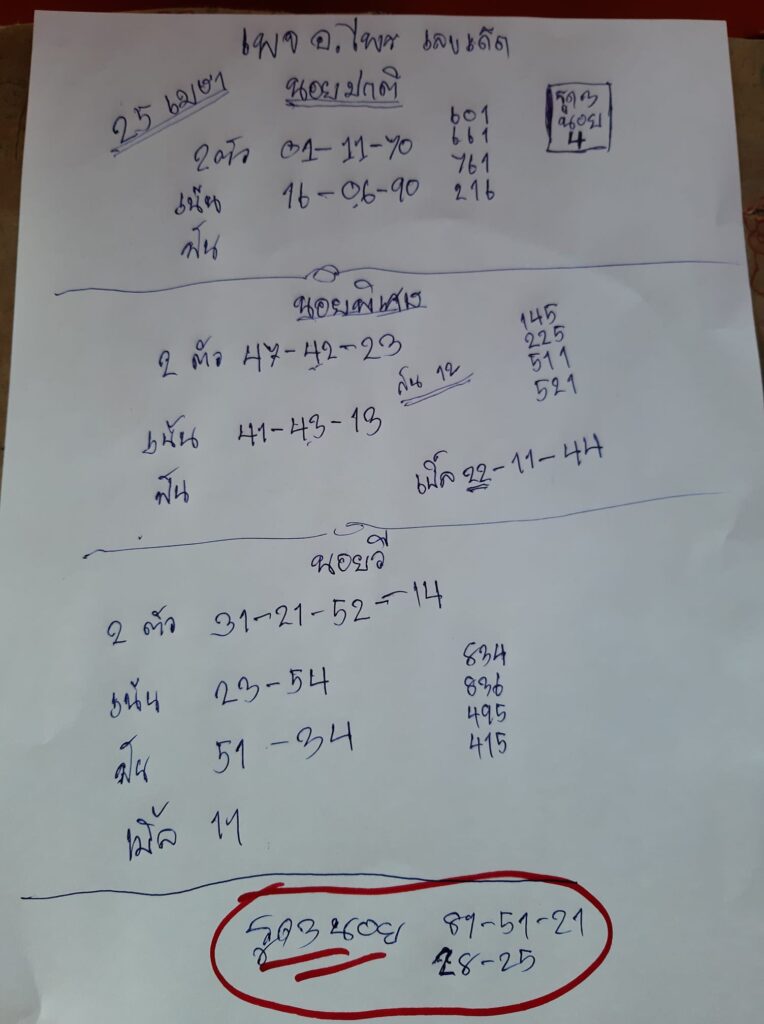 เพจ อ.ไพร เลขเด็ด
25 เมษา
นอยปกติ
รูด 3
นอย
4
2 ตัว 01-11-70
เน้น 16-06-90
ฟัน
601
661
761
216
นอยพิเศษ
2 ตัว 47-42-23
ฟัน 12
เน้น 41-43-13
ฟัน
145
225
511
521
เบิ้ล 22-11-44
นอยวี
2 ตัว 31-21-52=-14
เน้น 23-54
ฟัน 51-34
เบิ้ล 11
834
836
495
415
รูด 3 นอย 81-51-21
28-25